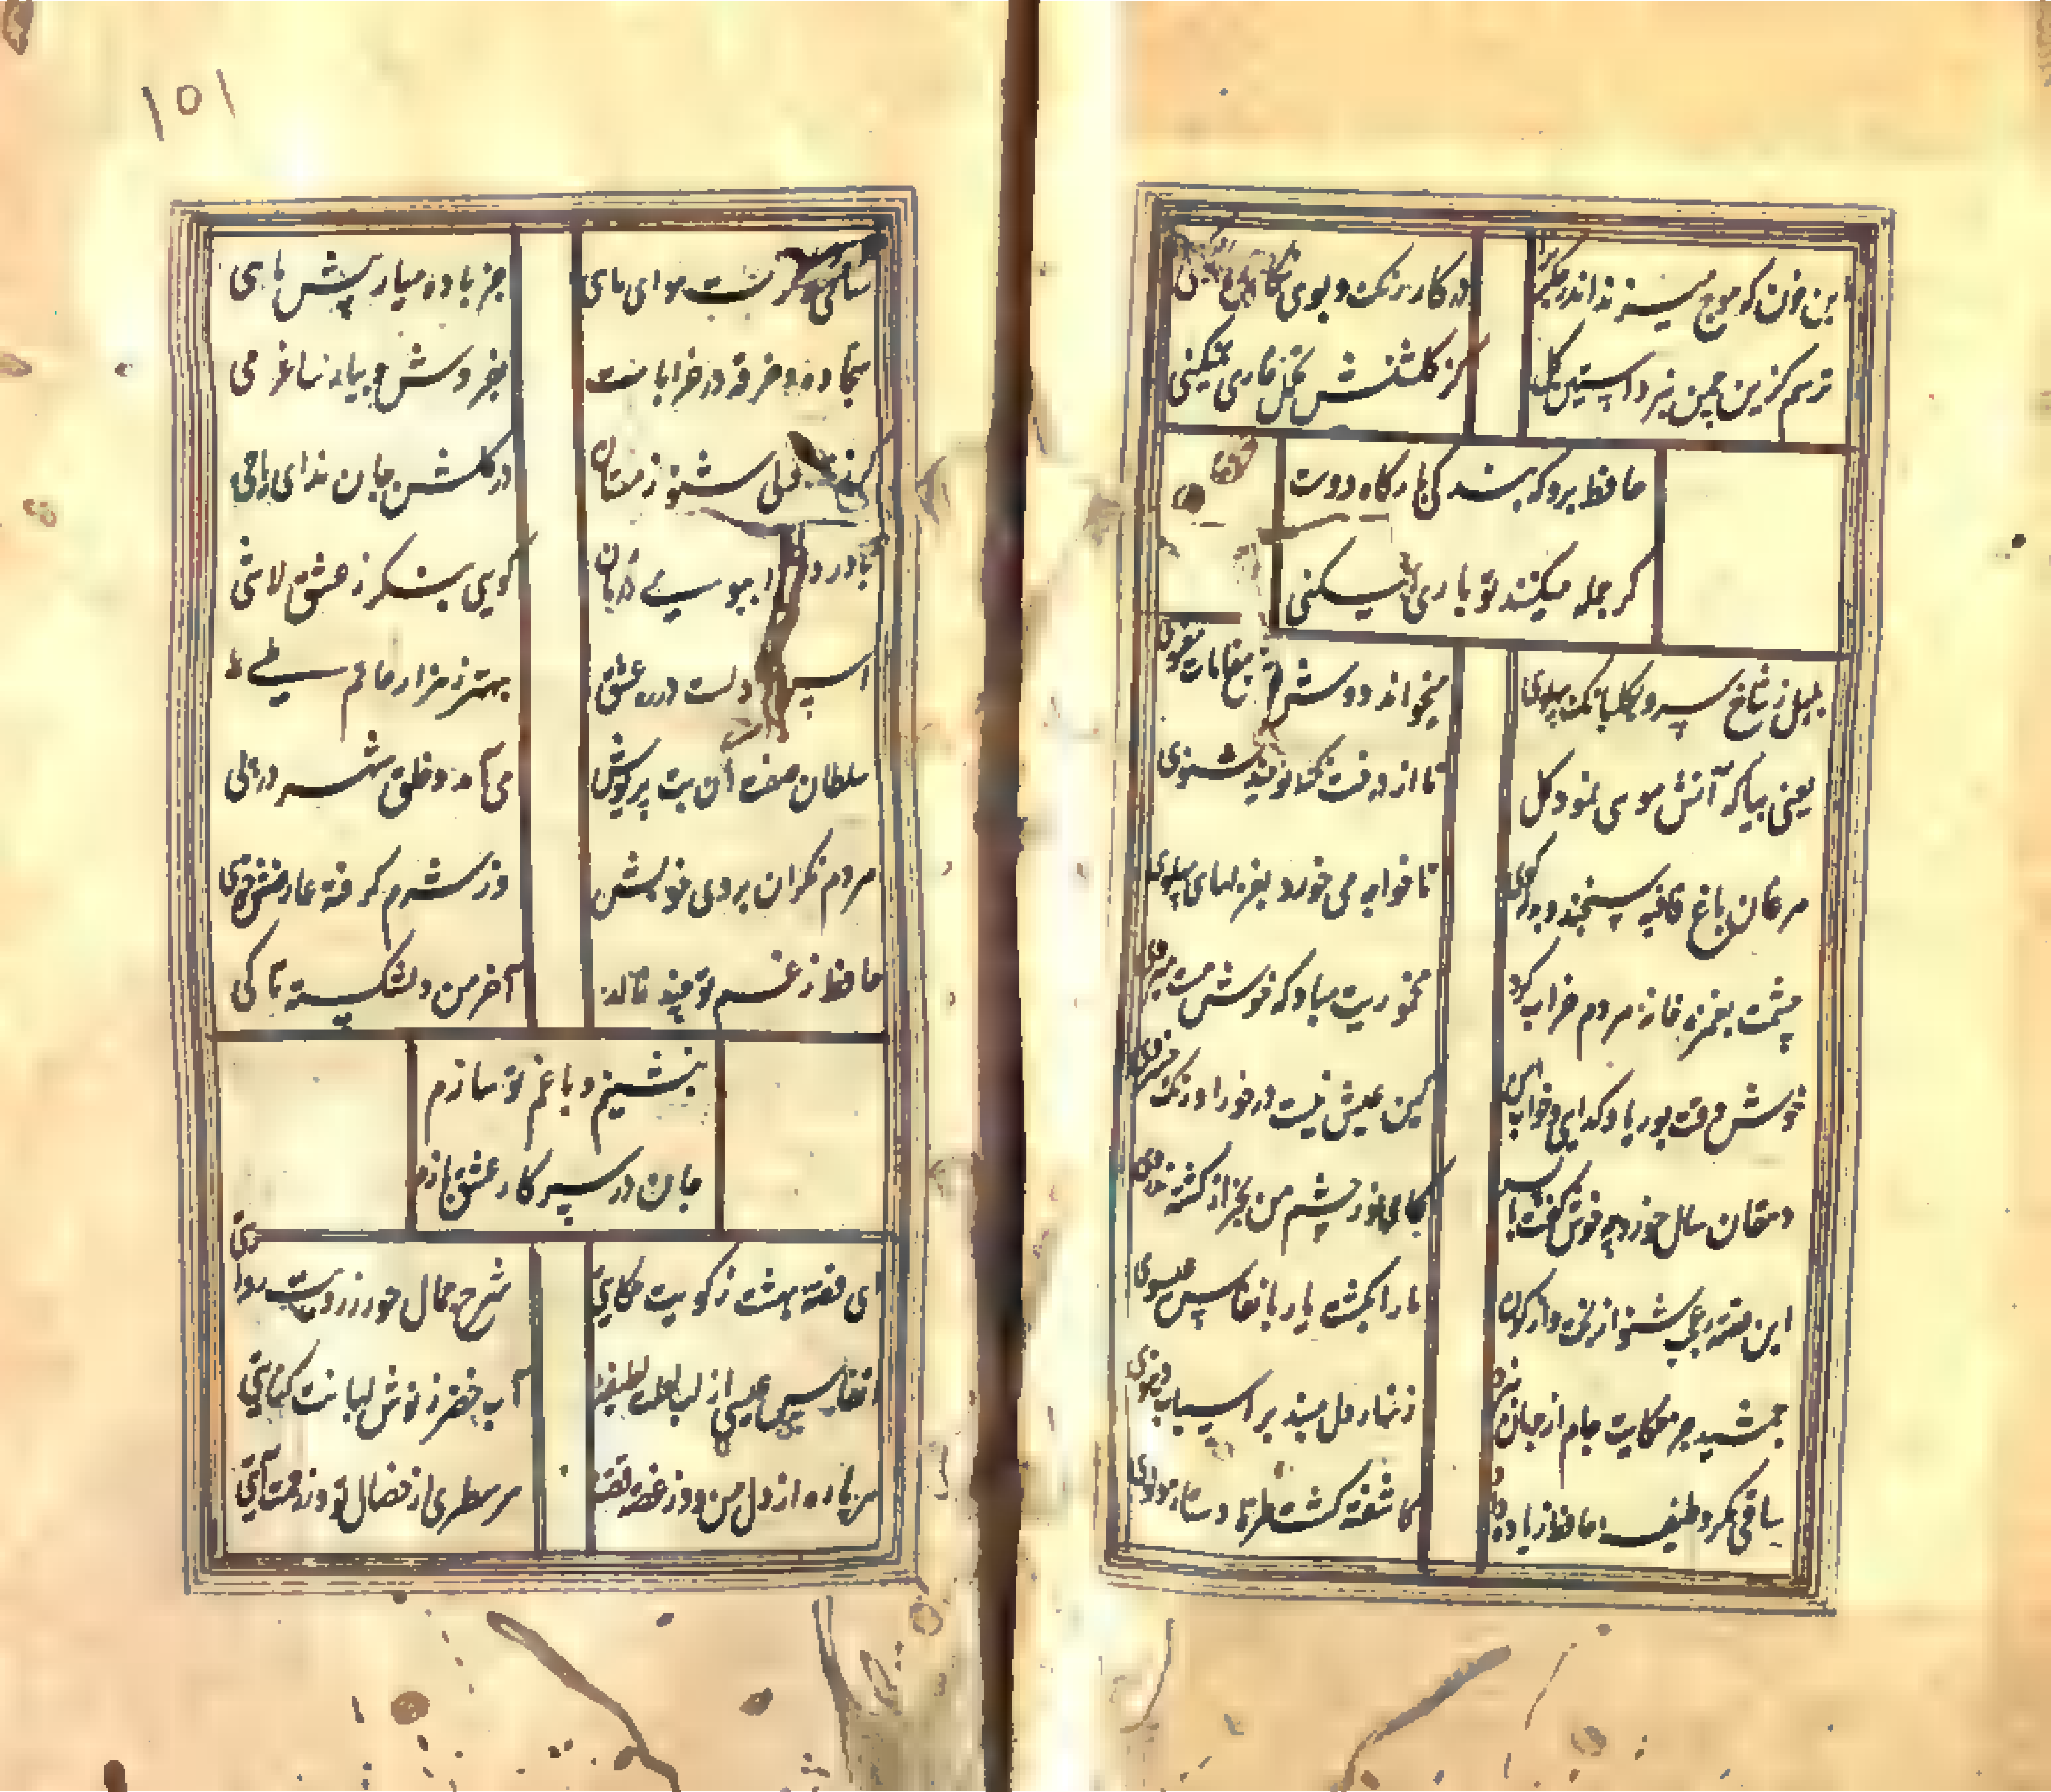 این خون که موج میزند اندر جگر ترا
در کار رنگ و بوی نگاری نمیکنی
ترسم کزین چمن نبری آستین گل
کز گلشنش تحمل خاری نمیکنی
حافظ برو که بندگی بارگاه دوست
گر جمله میکنند تو باری نمیکنی
بلبل ز شاخ سرو بگلبانک پهلوی
میخواند دوش درس مقامات معنوی
یعنی بیا که آتش موسی نمود گل
تا از درخت نکته توحید بشنوی
مرغان باغ قافیه سنجند و بذله گوی
تا خواجه می خورد بغزلهای پهلوی
چشمت بغمزه خانه مردم خراب کرد
مخموریت مباد که خوش مست میروی
خوش وقت بوریا و گدایی و خواب امن
کین عیش نیست در خور اورنگ خسروی
دهقان سال خورده چه خوش گفت با پسر
کای نور چشم من بجز از کشته ندروی
این قصه عجب شنو از بخت واژگون
ما را بکشت یار بانفاس عیسوی
جمشید جز حکایت جام از جهان نبرد
زنهار دل مبند بر اسباب دنیوی
ساقی مگر وظیفه حافظ زیاده داد
کاشفته گشت طره دستار مولوی
۱۵۱
ساقی اگرت هست هوای مای
جز باده میار پیش مای
سجاده و خرقه در خرابات
بفروش و بیار ساغر می
گر زنده دلی شنو ز مستان
در گلشن جان ندای یا حی
با درد درا ببوی درمان
کویی بنگر ز عشق لاشی
اسرار دلست در ره عشق
بهتر ز هزار حاتم طی
سلطان صفت آن بت پریوش
می آمد و خلق شهر در پی
مردم نگران بروی خوبش
وز شرم گرفته عارضش خوی
حافظ ز غم تو چند نالد
آخر من دلشکسته تا کی
بنشینم و با غم تو سازم
جان در سر کار عشق بازم
ای قصه بهشت ز کویت حکایتی
شرح جمال حور ز رویت روایتی
انفاس عیسی از لب لعلت لطیفه
آب خضر ز نوش لبانت کنایتی
هر پاره از دل من و از غصه قصه
هر سطری از خصال تو وز رحمت آیتی